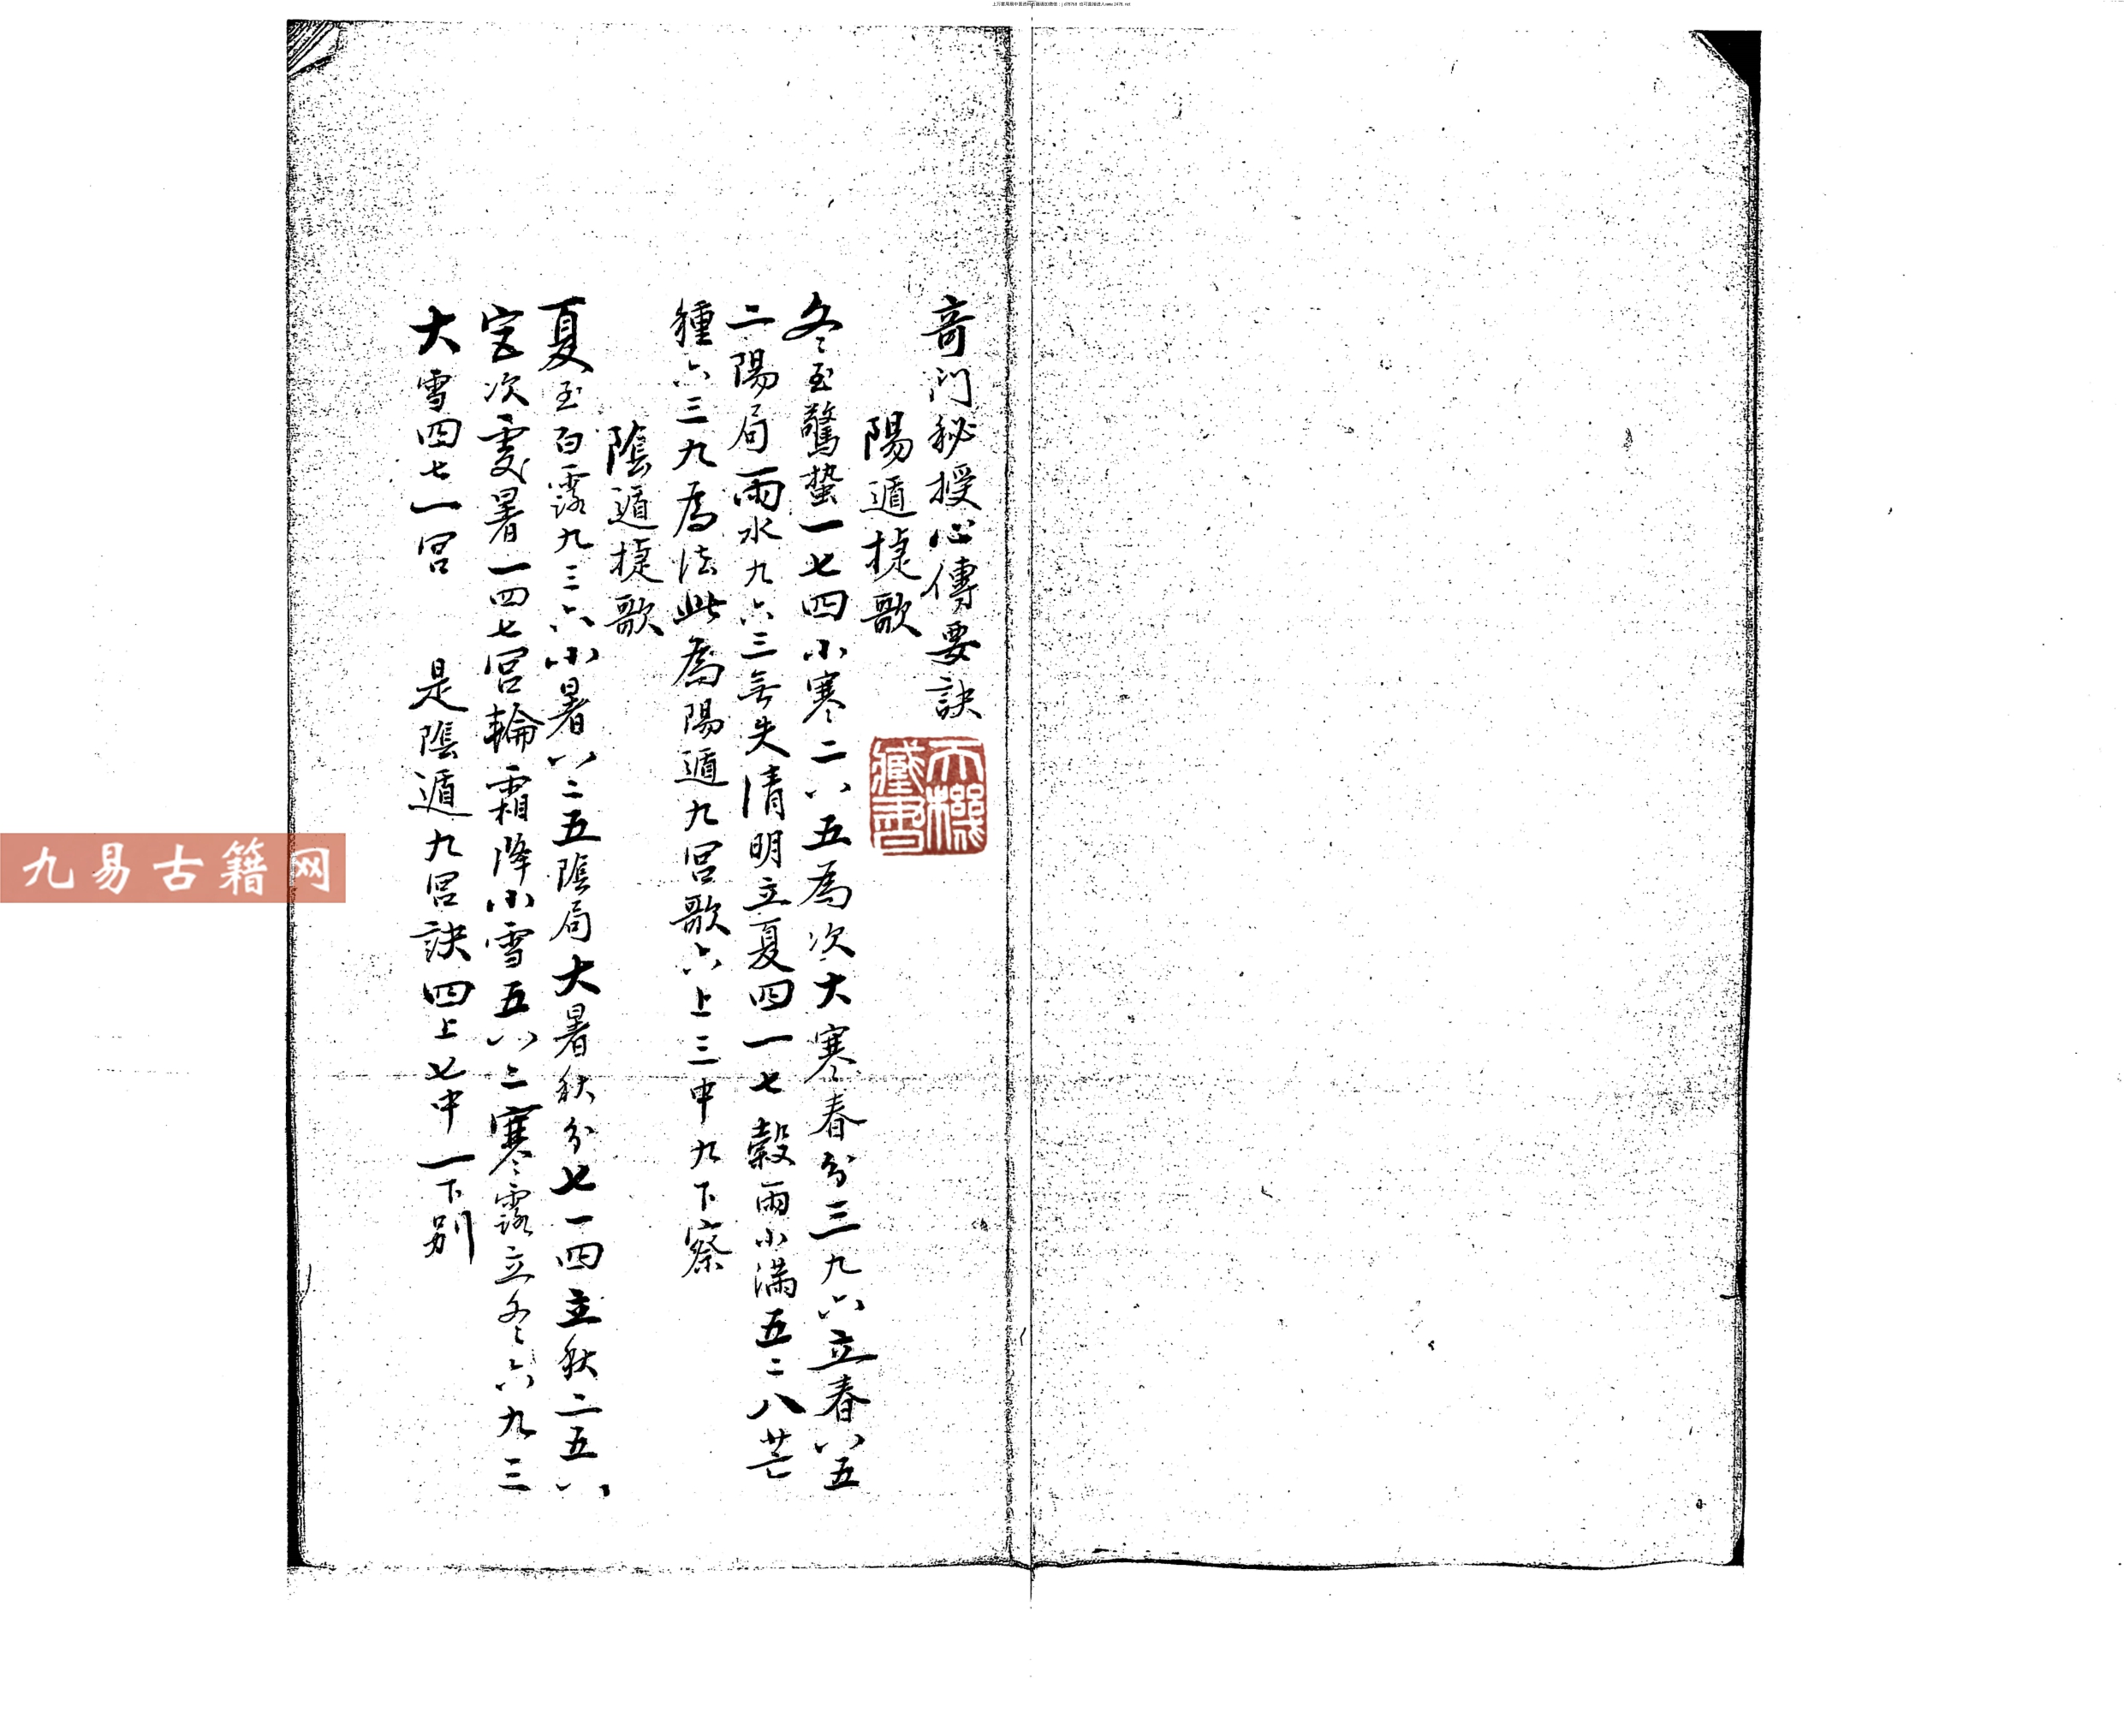 奇門秘授心傳要訣
陽遁捷歌
冬至驚蟄一七四小寒二八五為次大寒春分三九六立春八五
二陽局雨水九六三無失清明立夏四一七穀雨小滿五二八芒
種六三九為法此為陽遁九宮歌六上三中九下察
陰遁捷歌
夏至白露九三六小暑八二五陰局大暑秋分七一四立秋二五八
宮次處暑一四七宮輪霜降小雪五八二寒露立冬六九三
大雪四七一宮 是陰遁九宮訣四上七中一下別
天機
藏書
九易古籍网